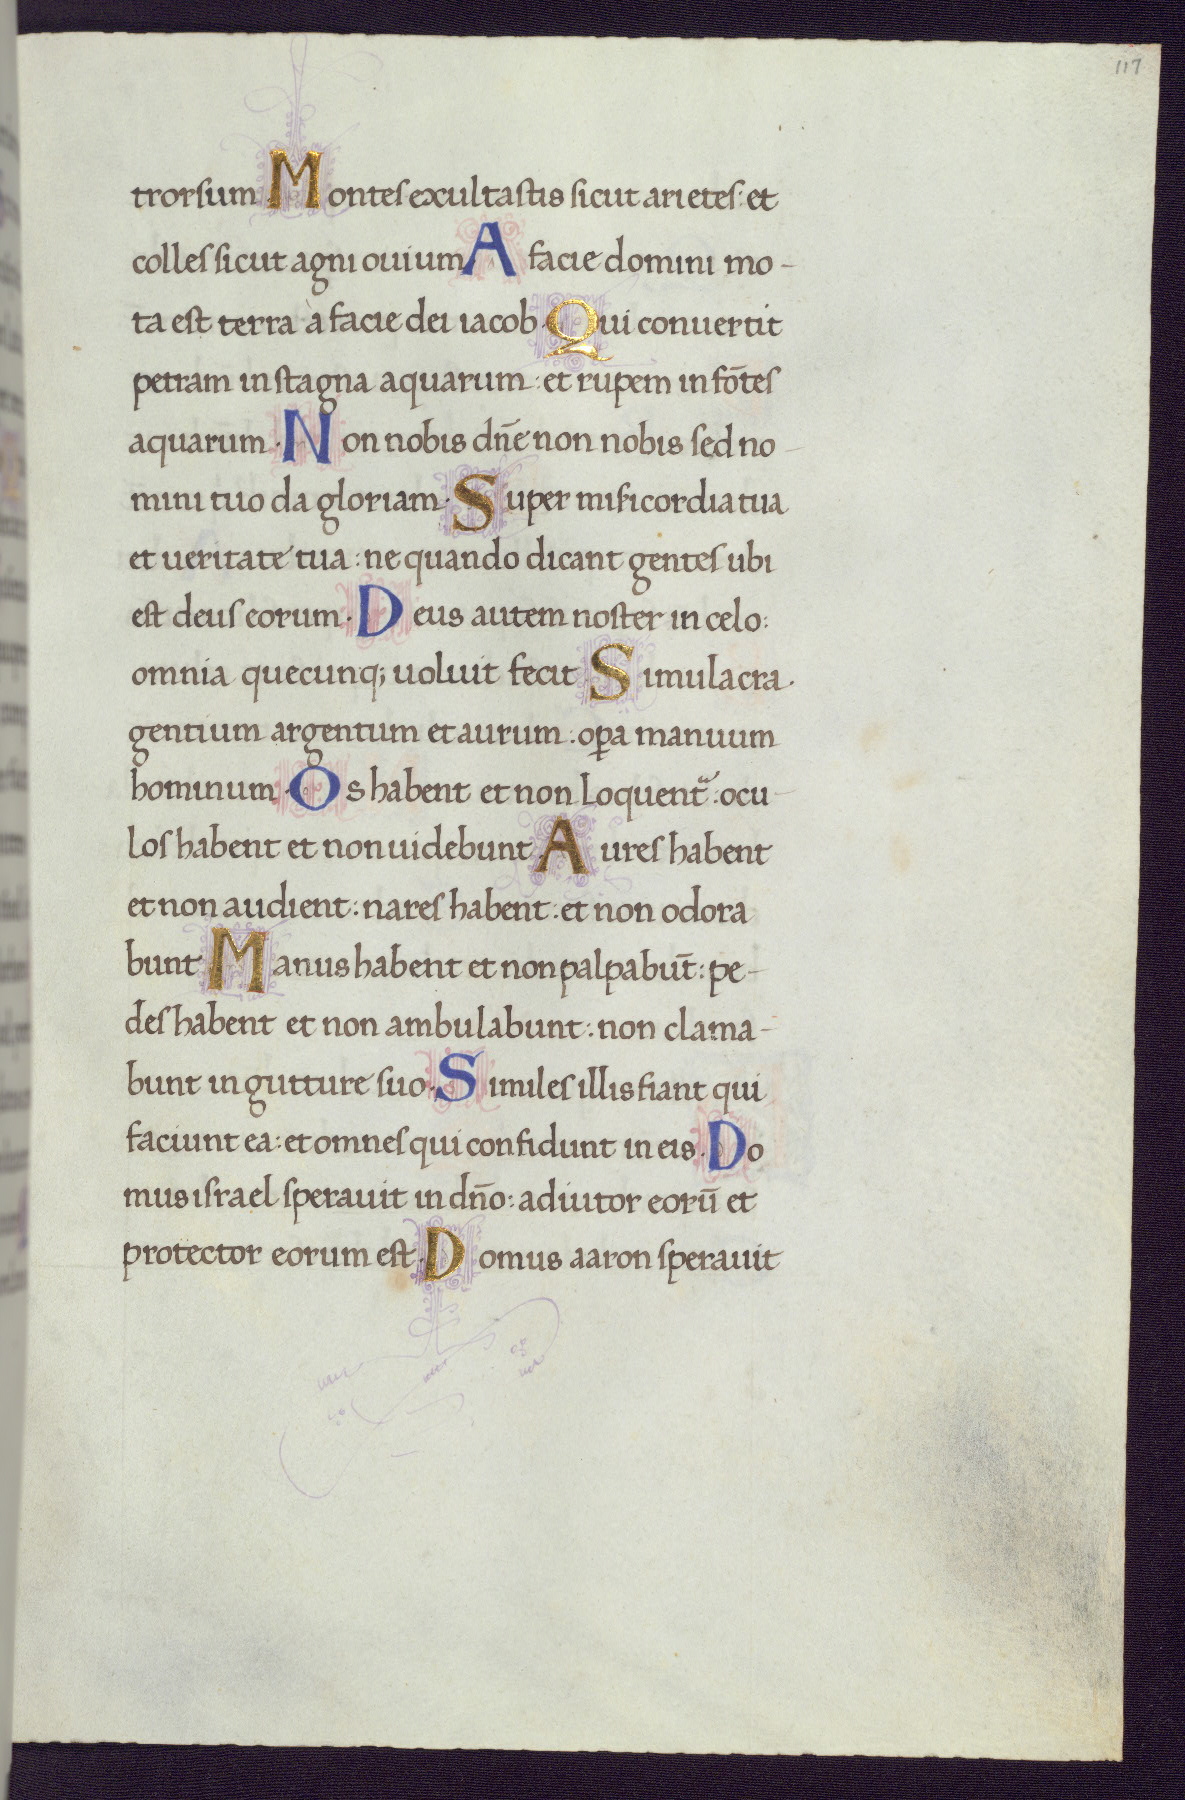 117
trorsum Montes exultastis sicut arietes: et
colles sicut agni ouium A facie domini mo-
ta est terra à facie dei iacob. Qui conuertit
petram in stagna aquarum: et rupem in fōtes
aquarum. Non nobis dn̄e non nobis sed no-
mini tuo da gloriam. Super misicordia tua
et ueritate tua: ne quando dicant gentes ubi
est deus eorum. Deus autem noster in celo:
omnia quecunq; uoluit fecit Simulacra.
gentium argentum et aurum: oꝑa manuum
hominum. Os habent et non loquent᷑: ocu-
los habent et non uidebunt Aures habent
et non audient: nares habent: et non odora
bunt Manus habent et non palpabūt: pe-
des habent et non ambulabunt: non clama-
bunt in gutture suo. Similes illis fiant qui
faciunt ea: et omnes qui confidunt in eis. Do
mus israel sperauit in dn̄o: adiutor eorū et
protector eorum est. Domus aaron sperauit